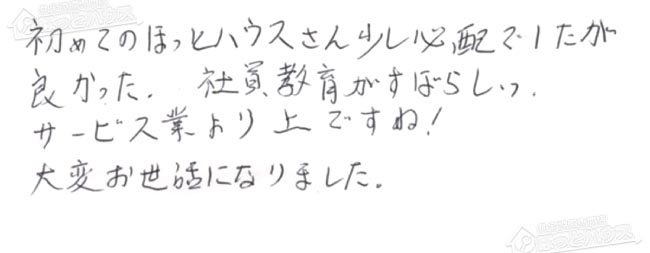 初めてのほっとハウスさん少し必配でしたが
良かった. 社員教育がすばらしい.
サービス業より上ですね!
大変お世話になりました。
ほっとハウス